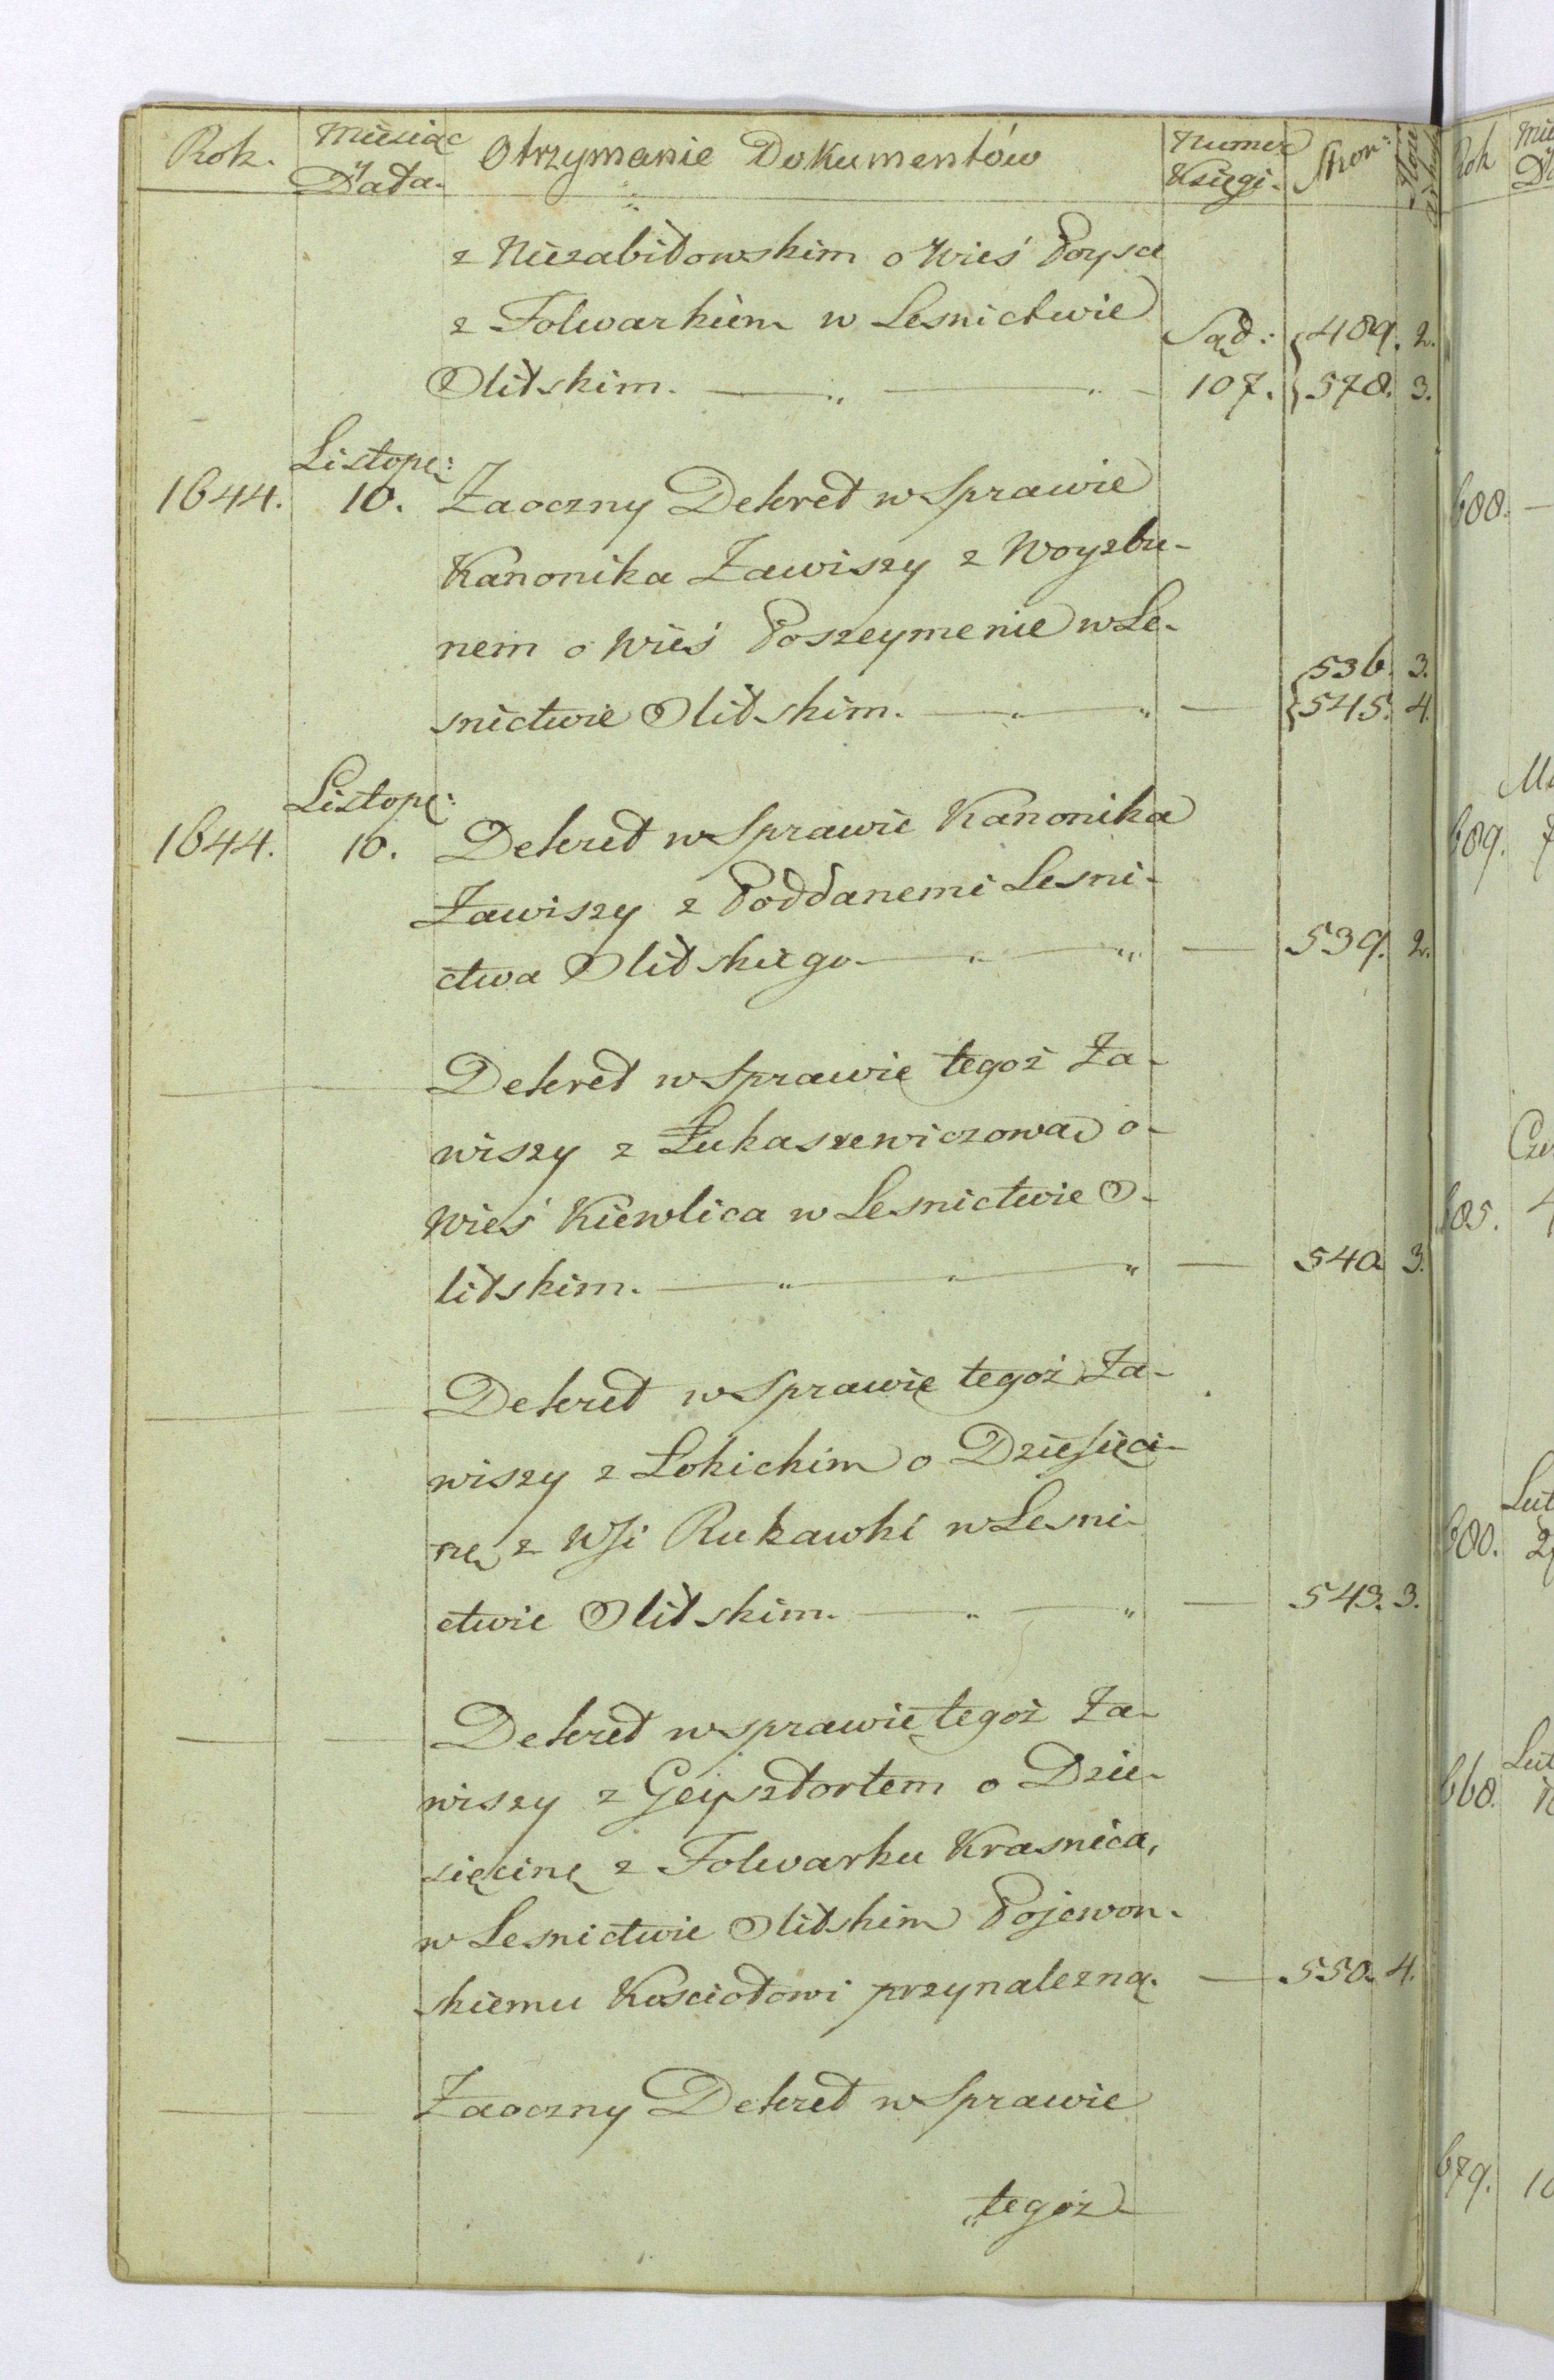 Rok. Miesiąc y Data. Otrzymanie Dokumentów Numer Księgi. Stron:
z Niezabitowskim o Wieś Poysa
z Folwarkiem w Lesnictwie Sąd: 489. 2.
Olitskim. 107. 578. 3.
Listopa:
1644. 10. Zaoczny Dekret w Sprawie
Kanonika Zawiszy z Woyzbu-
nem o Wieś Poszeymenie w Le-
536. 3.
snictwie Olitskim. — — — 545. 4.
Listopa:
1644. 10. Dekret w Sprawie Kanonika
Zawiszy z Poddanemi Lesni-
ctwa Olitskiego — — — 539. 2.
— Dekret w Sprawie tegoż Za-
wiszy z Łukaszewiczową o-
Wieś Kiewlica w Lesnictwie O-
litskim. — — — 540 3.
— Dekret w Sprawie tegoż Za-
wiszy z Łokickim o Dziesięci-
nę z Wsi Rukawki w Lesni-
ctwie Olitskim. — — — 543. 3.
— — Dekret w sprawie tegoż Za-
wiszy z Geysztortem o Dzie-
sięcinę z Folwarku Krasnica,
w Lesnictwie Olitskim Pojewon-
skiemu Kosciołowi przynalezną. — 550. 4.
— Zaoczny Dekret w Sprawie
tegoż
Rok
688. —
689.
685.
680.
668.
679. 10